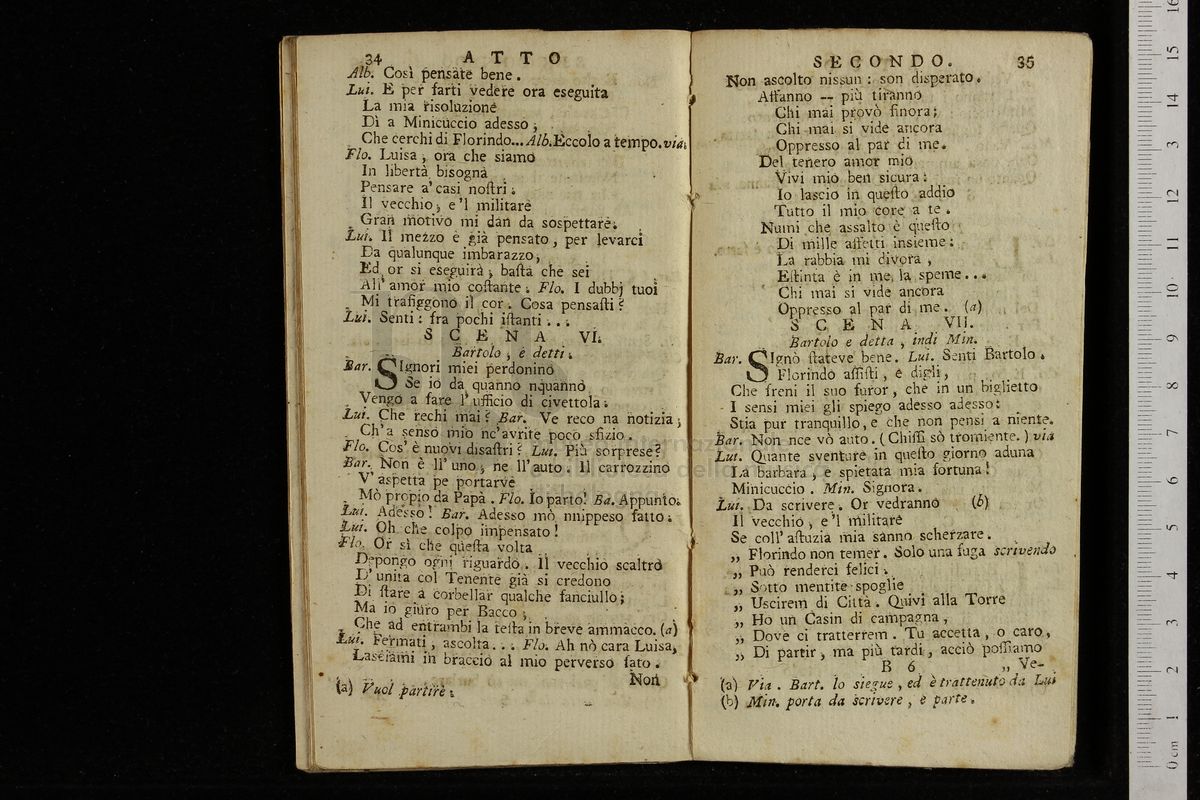 34 ATTO
Alb. Così pensate bene.
Lui. E per farti vedere ora eseguita
La mia risoluzione
Dì a Minicuccio adesso,
Che cerchi di Florindo... Alb. Eccolo a tempo. via.
Flo. Luisa, ora che siamo
In libertà bisogna
Pensare a' casi noſtri.
Il vecchio, e 'l militare
Gran motivo mi dan da sospettare.
Lui. Il mezzo è già pensato, per levarci
Da qualunque imbarazzo,
Ed or si eseguirà, baſta che sei
All' amor mio coſtante. Flo. I dubbj tuoi
Mi trafiggono il cor. Cosa pensaſti?
Lui. Senti: fra pochi iſtanti...
SCENA VI.
Bartolo, e detti.
Bar. SIgnori miei perdonino
Se io da quanno nquanno
Vengo a fare l' ufficio di civettola.
Lui. Che rechi mai? Bar. Ve reco na notizia;
Ch' a senso mio nc' avrite poco sfizio.
Flo. Cos' è nuovi disaſtri? Lui. Più sorprese?
Bar. Non è ll' uno, ne ll' auto. Il carrozzino
V' aspetta pe portarve
Mò propio da Papà. Flo. Io parto! Ba. Appunto.
Lui. Adesso! Bar. Adesso mò nnippeso fatto.
Lui. Oh che colpo impensato!
Flo. Or sì che queſta volta
Depongo ogni riguardo. Il vecchio scaltro
D' unita col Tenente già si credono
Di ſtare a corbellar qualche fanciullo;
Ma io giuro per Bacco,
Che ad entrambi la teſta in breve ammacco. (a)
Lui. Fermati, ascolta... Flo. Ah nò cara Luisa,
Lasciami in braccio al mio perverso fato.
Non
(a) Vuol partire.
SECONDO. 35
Non ascolto nissun: son disperato.
Affanno -- più tiranno
Chi mai provò finora;
Chi mai si vide ancora
Oppresso al par di me.
Del tenero amor mio
Vivi mio ben sicura:
Io lascio in queſto addio
Tutto il mio core a te.
Numi che assalto è queſto
Di mille affetti insieme:
La rabbia mi divora,
Eſtinta è in me la speme...
Chi mai si vide ancora
Oppresso al par di me. (a)
SCENA VII.
Bartolo e detta, indi Min.
Bar. SIgnò ſtateve bene. Lui. Senti Bartolo.
Florindo aſſiſti, e digli,
Che freni il suo furor, che in un biglietto
I sensi miei gli spiego adesso adesso:
Stia pur tranquillo, e che non pensi a niente.
Bar. Non nce vò auto. (Chiſſi sò tromiente.) via
Lui. Quante sventure in queſto giorno aduna
La barbara, e spietata mia fortuna!
Minicuccio. Min. Signora.
Lui. Da scrivere. Or vedranno (b)
Il vecchio, e 'l militare
Se coll' aſtuzia mia sanno scherzare.
„ Florindo non temer. Solo una fuga scrivendo
„ Può renderci felici.
„ Sotto mentite spoglie
„ Uscirem di Città. Quivi alla Torre
„ Ho un Casin di campagna,
„ Dove ci tratterrem. Tu accetta, o caro,
„ Di partir, ma più tardi, acciò poſſiamo
B 6 „ Ve-
(a) Via. Bart. lo siegue, ed è trattenuto da Lui
(b) Min. porta da scrivere, e parte.